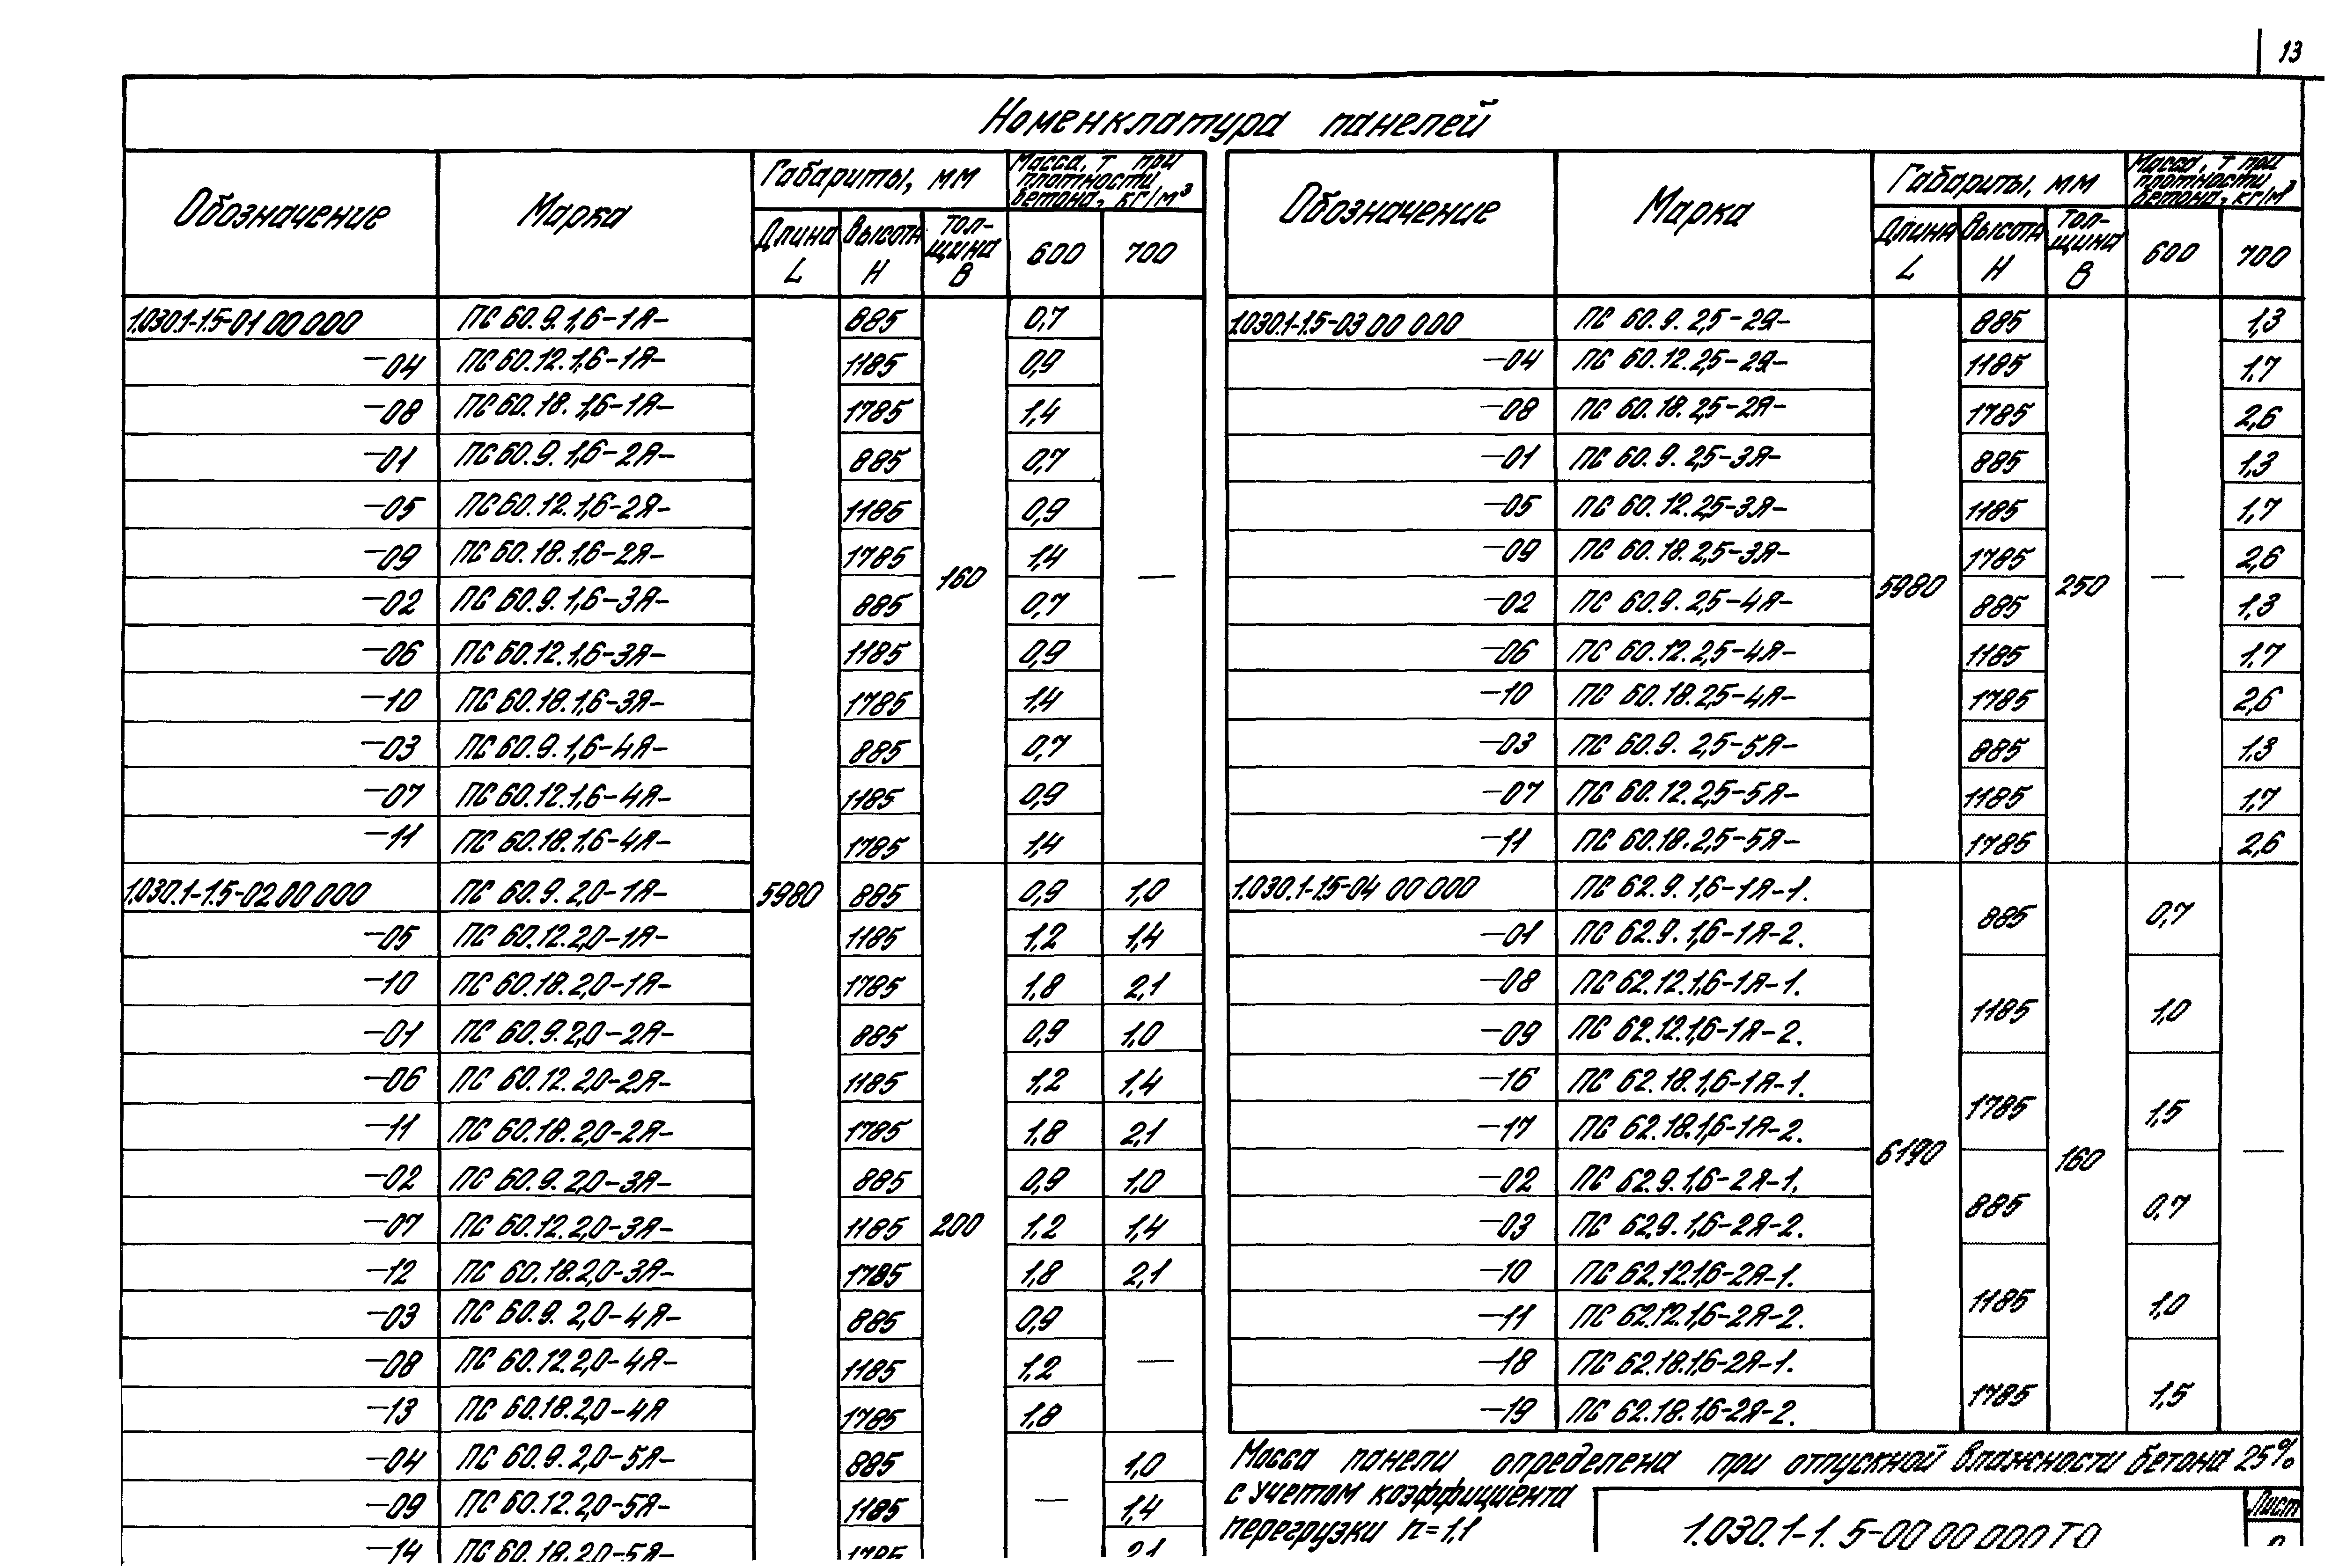 13
Номенклатура панелей
Обозначение Марка Габариты, мм Масса, т при плотности бетона, кг/м³
Длина L Высота H Толщина B 600 700
1.030.1-1.5-01 00 000 ПС 60.9.1,6-1Я- 885 0,7
-04 ПС 60.12.1,6-1Я- 1185 0,9
-08 ПС 60.18.1,6-1Я- 1785 1,4
-01 ПС 60.9.1,6-2Я- 885 0,7
-05 ПС 60.12.1,6-2Я- 1185 0,9
-09 ПС 60.18.1,6-2Я- 1785 1,4
160 —
-02 ПС 60.9.1,6-3Я- 885 0,7
-06 ПС 60.12.1,6-3Я- 1185 0,9
-10 ПС 60.18.1,6-3Я- 1785 1,4
-03 ПС 60.9.1,6-4Я- 885 0,7
-07 ПС 60.12.1,6-4Я- 1185 0,9
-11 ПС 60.18.1,6-4Я- 1785 1,4
1.030.1-1.5-02 00 000 ПС 60.9.2,0-1Я- 5980 885 0,9 1,0
-05 ПС 60.12.2,0-1Я- 1185 1,2 1,4
-10 ПС 60.18.2,0-1Я- 1785 1,8 2,1
-01 ПС 60.9.2,0-2Я- 885 0,9 1,0
-06 ПС 60.12.2,0-2Я- 1185 1,2 1,4
-11 ПС 60.18.2,0-2Я- 1785 1,8 2,1
-02 ПС 60.9.2,0-3Я- 885 0,9 1,0
-07 ПС 60.12.2,0-3Я- 1185 200 1,2 1,4
-12 ПС 60.18.2,0-3Я- 1785 1,8 2,1
-03 ПС 60.9.2,0-4Я- 885 0,9
-08 ПС 60.12.2,0-4Я- 1185 1,2 —
-13 ПС 60.18.2,0-4Я 1785 1,8
-04 ПС 60.9.2,0-5Я- 885 1,0
-09 ПС 60.12.2,0-5Я- 1185 — 1,4
-14 ПС 60.18.2,0-5Я- 1785 2,1
Обозначение Марка Габариты, мм Масса, т при плотности бетона, кг/м³
Длина L Высота H Толщина B 600 700
1.030.1-1.5-03 00 000 ПС 60.9.2,5-2Я- 885 1,3
-04 ПС 60.12.2,5-2Я- 1185 1,7
-08 ПС 60.18.2,5-2Я- 1785 2,6
-01 ПС 60.9.2,5-3Я- 885 1,3
-05 ПС 60.12.2,5-3Я- 1185 1,7
-09 ПС 60.18.2,5-3Я- 1785 2,6
5980 250 —
-02 ПС 60.9.2,5-4Я- 885 1,3
-06 ПС 60.12.2,5-4Я- 1185 1,7
-10 ПС 60.18.2,5-4Я- 1785 2,6
-03 ПС 60.9.2,5-5Я- 885 1,3
-07 ПС 60.12.2,5-5Я- 1185 1,7
-11 ПС 60.18.2,5-5Я- 1785 2,6
1.030.1-1.5-04 00 000 ПС 62.9.1,6-1Я-1.
885 0,7
-01 ПС 62.9.1,6-1Я-2.
-08 ПС 62.12.1,6-1Я-1.
1185 1,0
-09 ПС 62.12.1,6-1Я-2.
-16 ПС 62.18.1,6-1Я-1.
1785 1,5
-17 ПС 62.18.1,6-1Я-2.
6190 160 —
-02 ПС 62.9.1,6-2Я-1.
885 0,7
-03 ПС 62.9.1,6-2Я-2.
-10 ПС 62.12.1,6-2Я-1.
1185 1,0
-11 ПС 62.12.1,6-2Я-2.
-18 ПС 62.18.1,6-2Я-1.
1785 1,5
-19 ПС 62.18.1,6-2Я-2.
Масса панели определена при отпускной влажности бетона 25%
с учетом коэффициента
перегрузки n=1,1
1.030.1-1.5-00 00 000 ТО
Лист